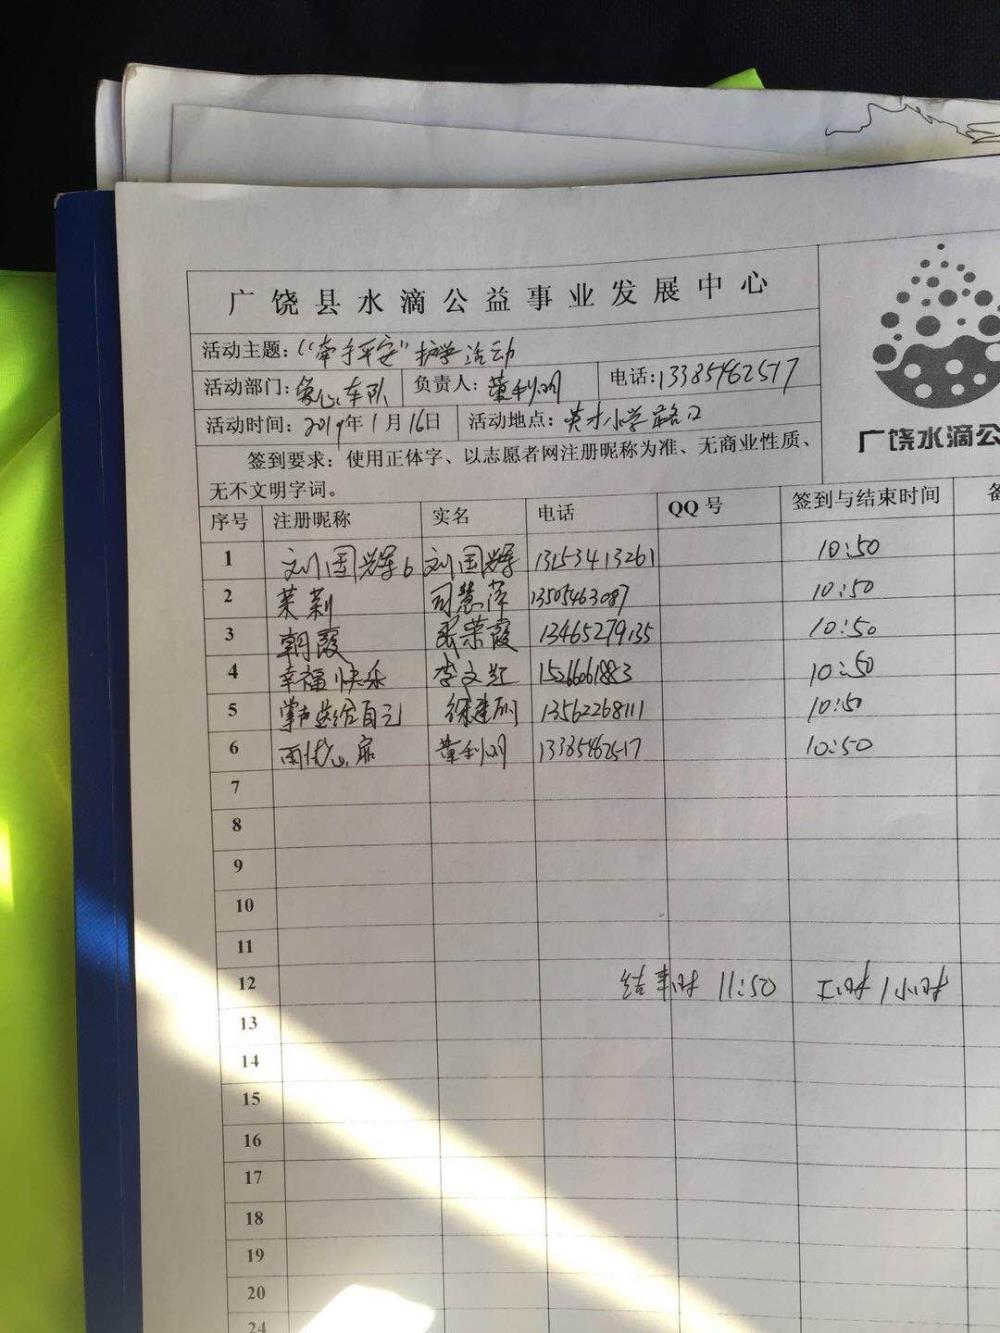 广饶县水滴公益事业发展中心
活动主题：“牵手平安”护学活动
活动部门：爱心车队 负责人：董利明 电话：13385462517
活动时间：2019年1月16日 活动地点：英才小学路口
签到要求：使用正体字、以志愿者网注册昵称为准、无商业性质、
无不文明字词。
广饶水滴公
序号 注册昵称 实名 电话 QQ号 签到与结束时间 备
1 刘国辉6 刘国辉 13153413261 10:50
2 茉莉 司慧萍 13505463087 10:50
3 朝霞 荣霞 13465279135 10:50
4 幸福快乐 李文红 10:50
5 掌声送给自己 徐建 13562268111 10:50
6 董利明 13385462517 10:50
7
8
9
10
11
12 结束时 11:50 工时1小时
13
14
15
16
17
18
19
20
24